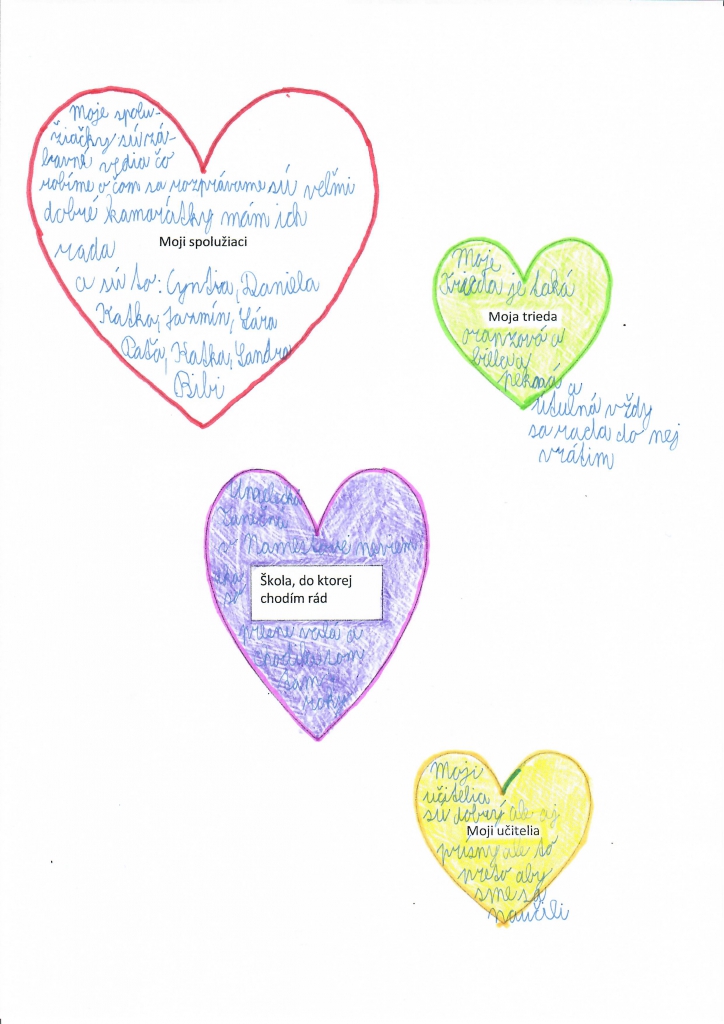 Moje spolu-
žiačky sú zá-
bavné vedia čo
robíme o čom sa rozprávame sú veľmi
dobré kamarátky mám ich
rada
Moji spolužiaci
a sú to: Cyntia, Daniela
Katka, Jazmín, Sára
Paťa, Katka, Sandra
Bibi
Moje
Trieda je taká
Moja trieda
oranzová a
biela a
pekná a
útulná vždy
sa rada do nej
vrátim
Umelecká
v Namestove neviem
Škola, do ktorej
chodím rád
Moji
učitelia
sú dobrý ale aj
Moji učitelia
prísny ale to
preto aby
sme sa
naučili